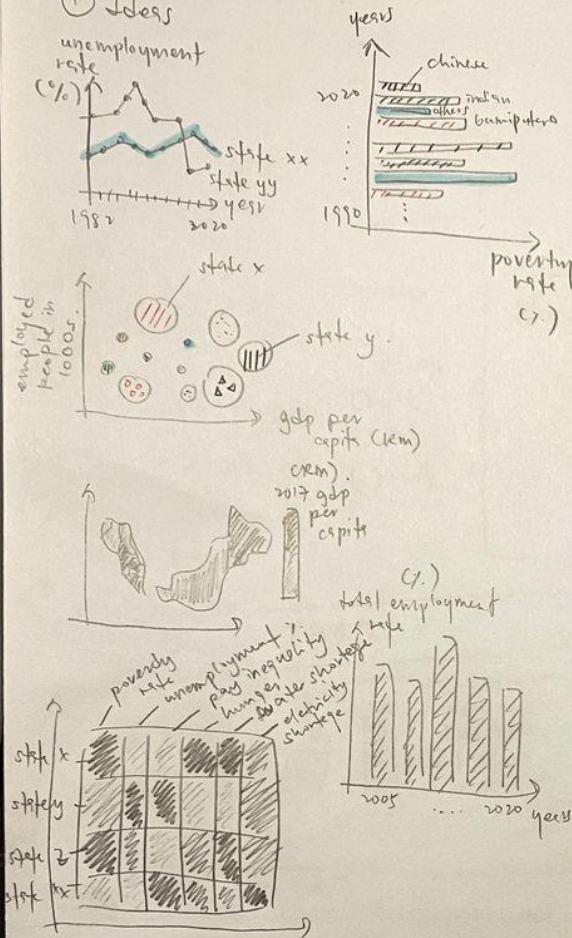 ① Ideas
unemployment
rate
(%)
state xx
state yy
year
1982
2020
years
chinese
2020
indian
others
bumiputera
1990
poverty
rate
(%)
state x
employed
people in
1000s.
state y.
gdp per
capita (rem)
(rem).
2017 gdp
per
capita
(%)
total employment
rate
2005
....
2020
years
poverty
rate
unemployment %
pay inequality
hunger
water shortage
eletricity
shortege
state x
state y
state z
state xx